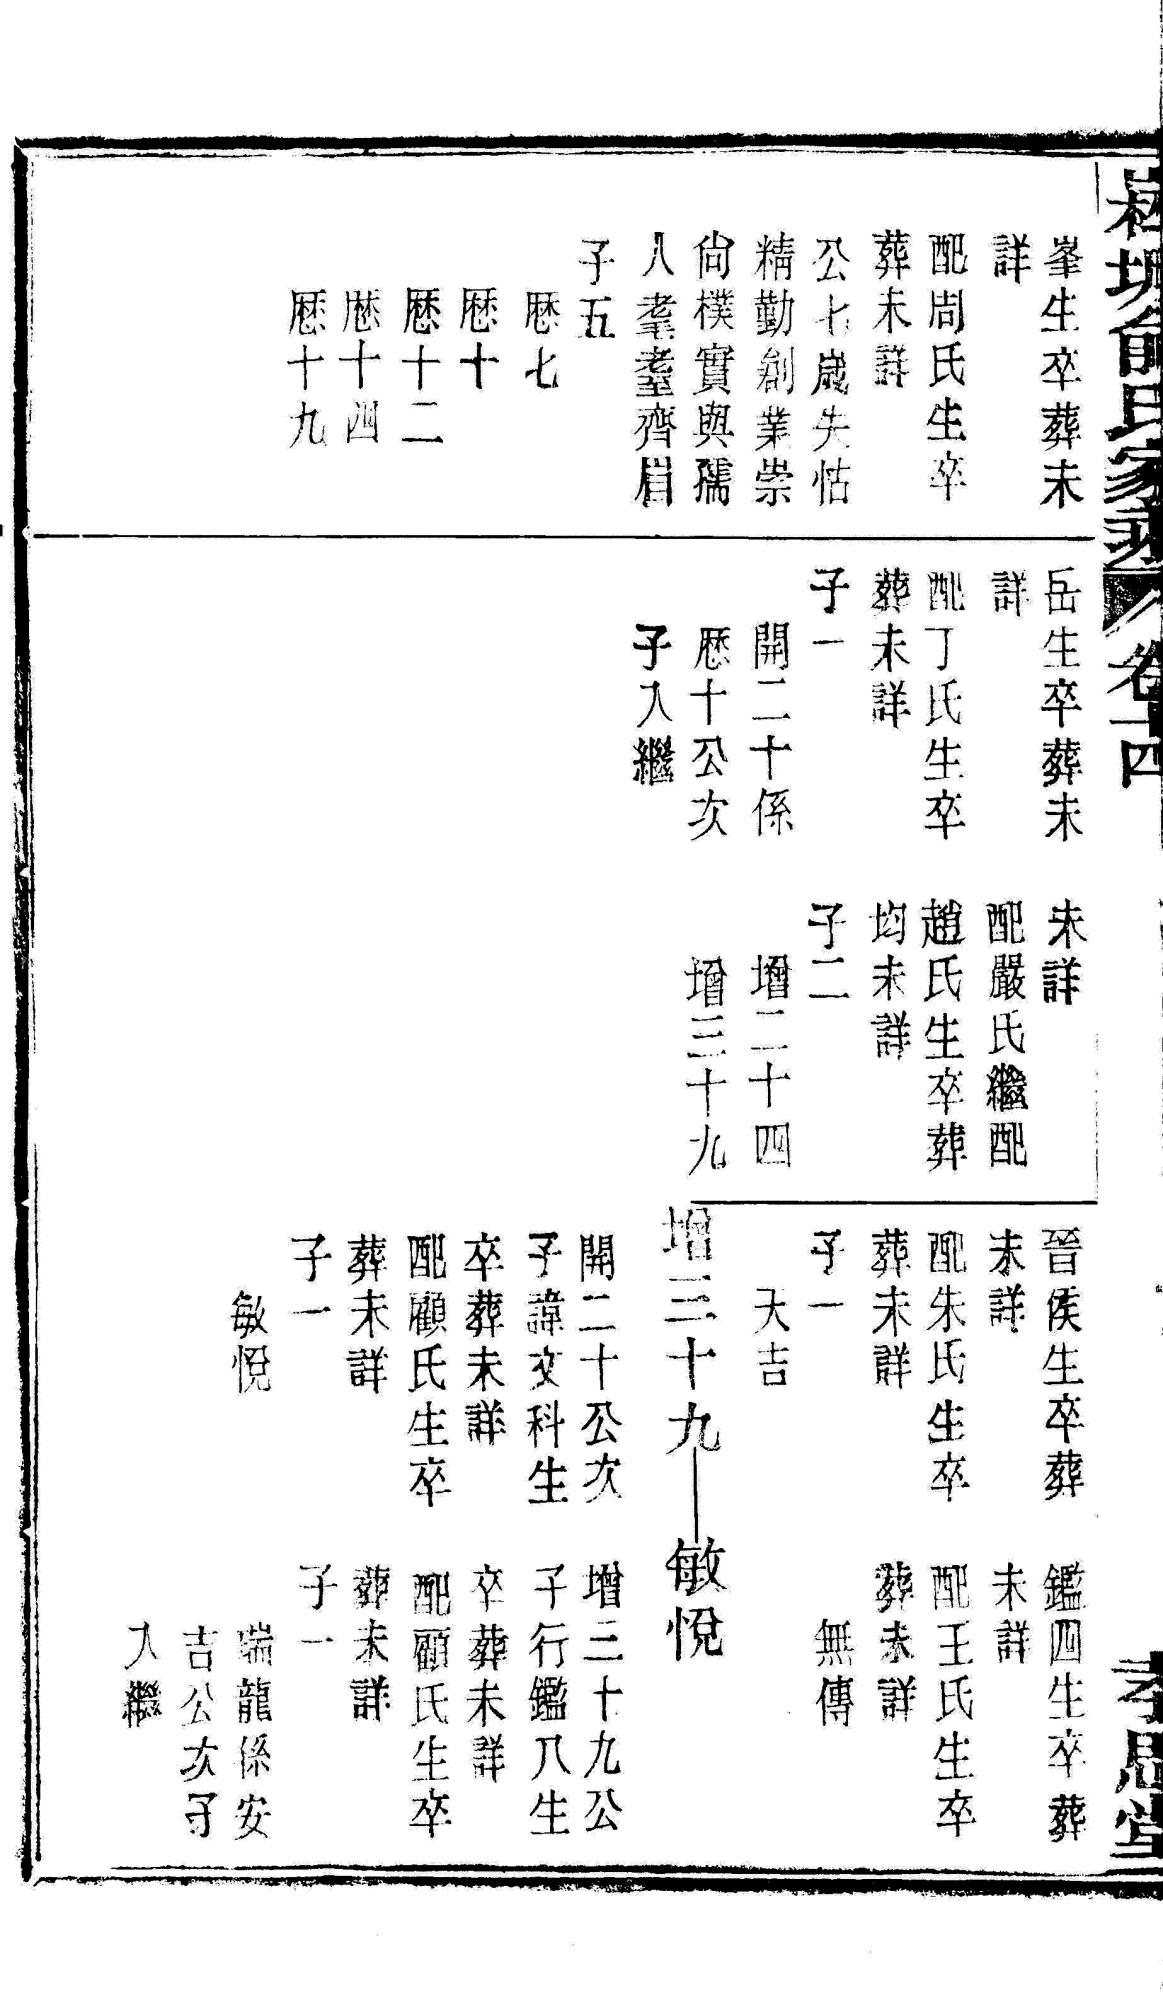 俞氏家乘 卷十四
孝思堂
峯生卒葬未
詳
配周氏生卒
葬未詳
公七歲失怙
精勤創業崇
尙樸實與孺
人耄耋齊眉
子五
厯七
厯十
厯十二
厯十四
厯十九
岳生卒葬未
詳
配丁氏生卒
葬未詳
子一
開二十係
厯十公次
子入繼
未詳
配嚴氏繼配
趙氏生卒葬
均未詳
子二
增二十四
增三十九
晉侯生卒葬
未詳
配朱氏生卒
葬未詳
子一
大吉
鑑四生卒葬
未詳
配王氏生卒
葬未詳
無傳
增三十九
敏悅
開二十公次
子諱文科生
卒葬未詳
配顧氏生卒
葬未詳
子一
敏悅
增三十九公
子行鑑八生
卒葬未詳
配顧氏生卒
葬未詳
子一
瑞龍係安
吉公次子
入繼